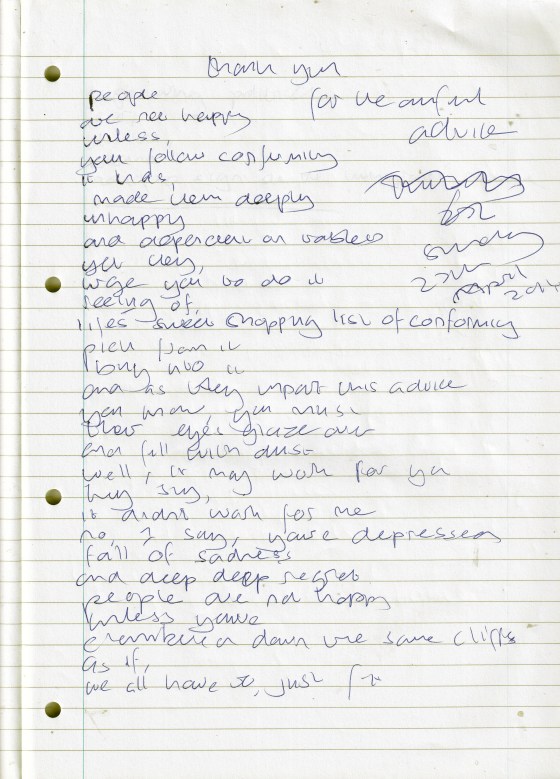 thank you
for the awful
advice
people
are not happy
unless,
you follow conforming
it has,
made them deeply
unhappy
and dependent on tablets
yet they,
urge you to do it
seeing of,
lifes sweet shopping list of conforming
pick from it
buy into it
and as they impart this advice
you know, you must
their eyes glaze over
and fill with dust
well, it may work for you
they say,
it didnt work for me
no, I say, youre depressed
full of sadness
and deep deep regret
people are not happy
unless youve
clambered down the same cliffs
as if,
we all have to, just
for
Sunday
27th
April
2014